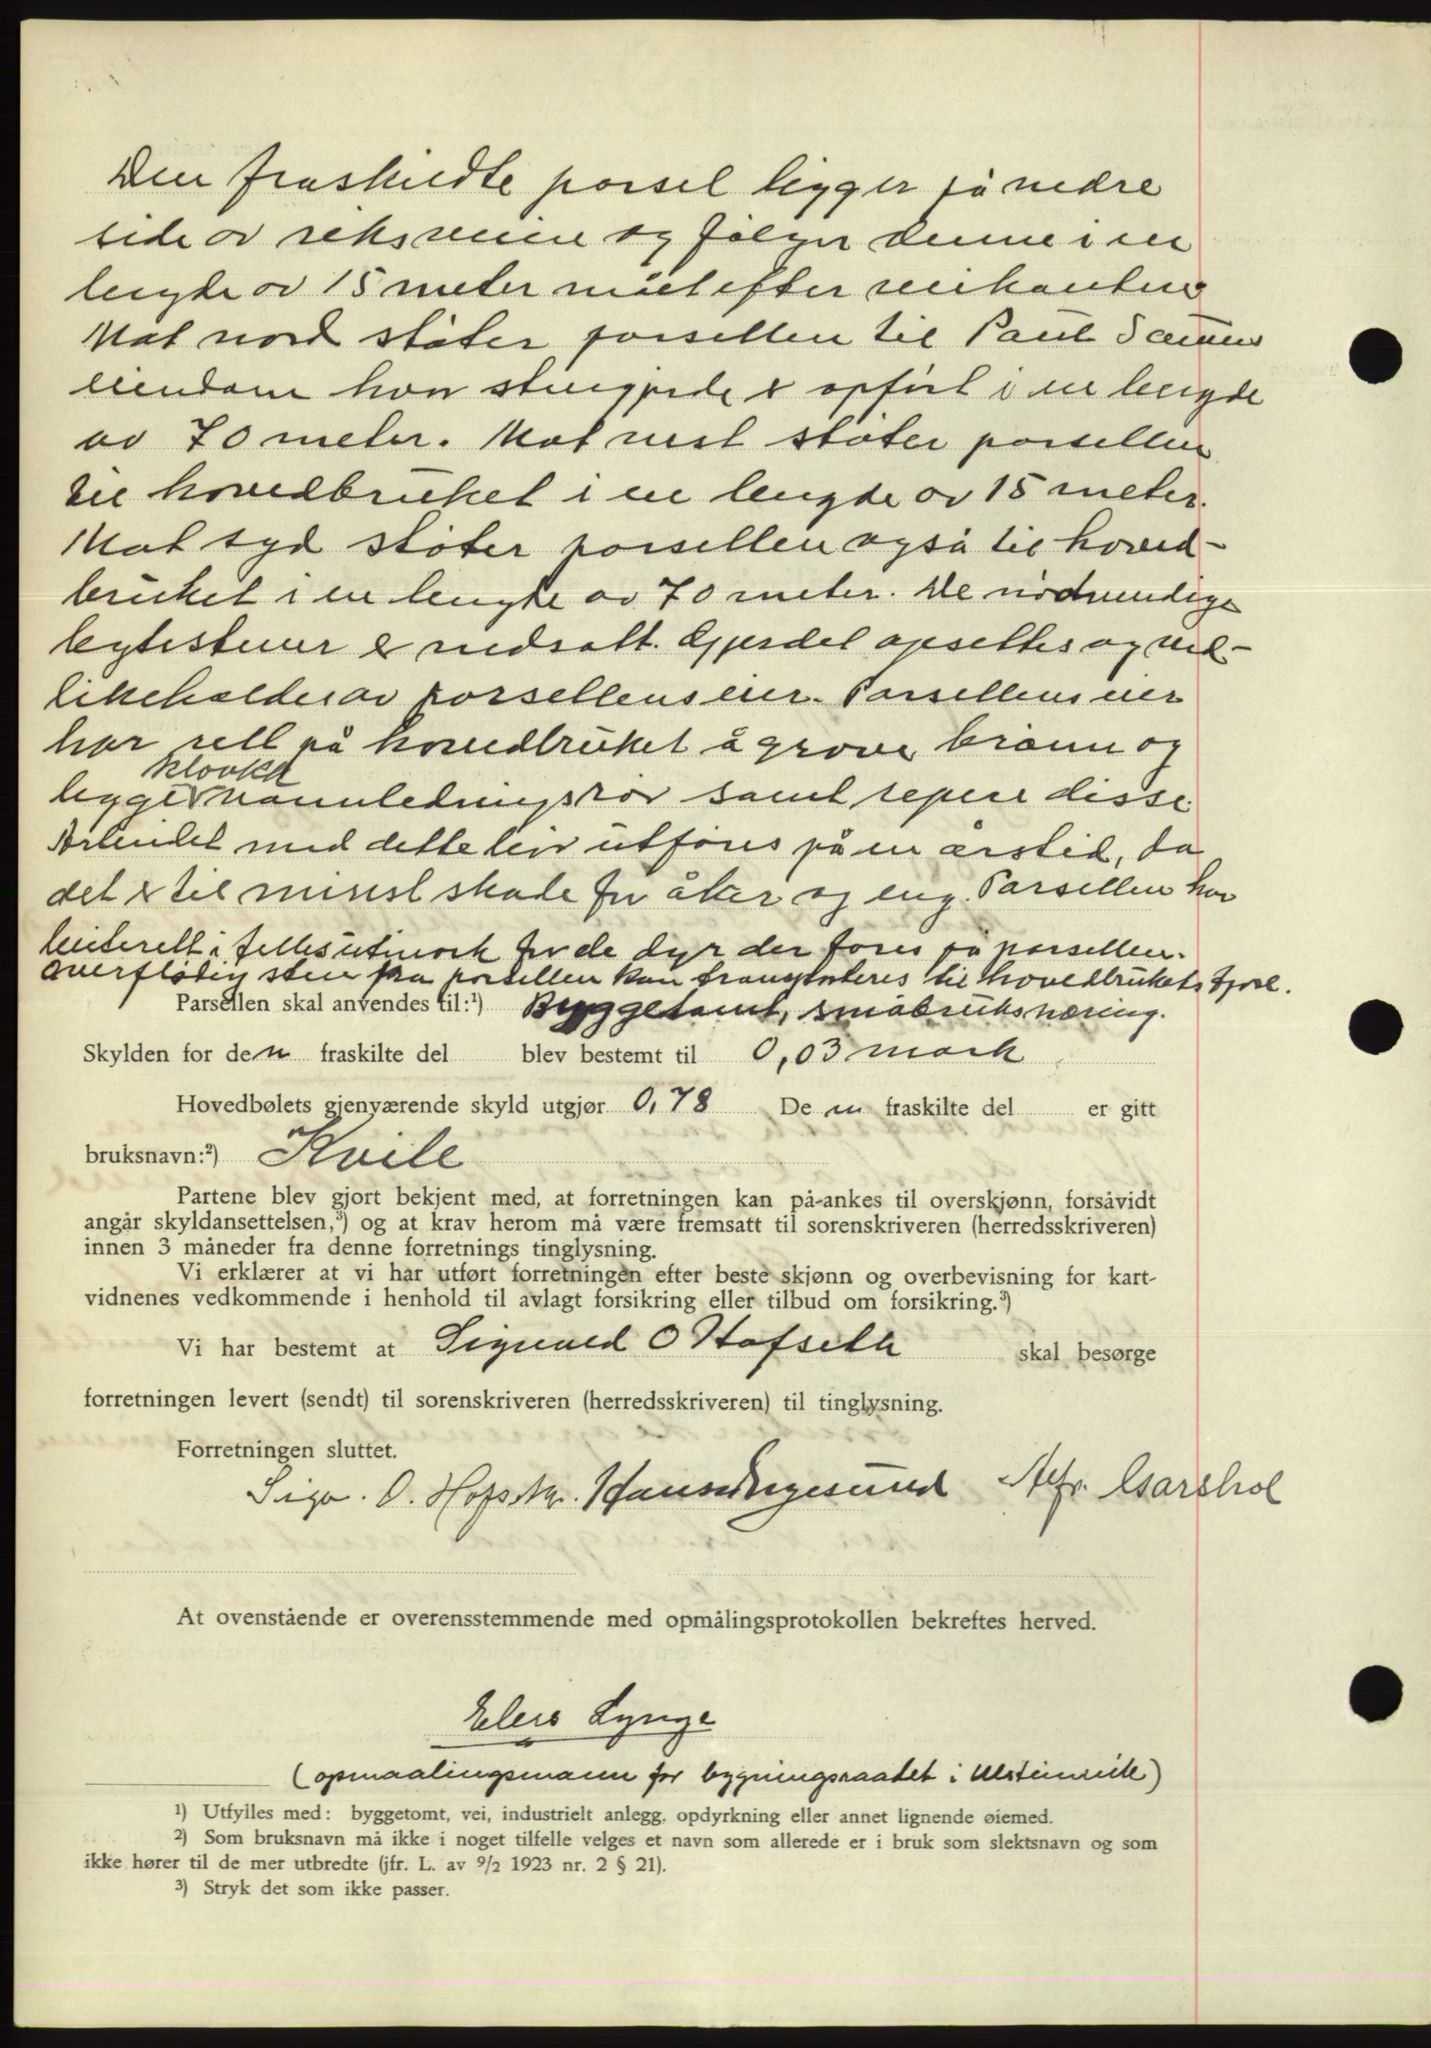 Den fraskildte parsel ligger på nedre
side av riksveien og følger denne i en
lengde av 15 meter målt efter veikanten.
Mot nord støter parsellen til Paul
eiendom hvor stengjerde er opført i en lengde
av 70 meter. Mot vest støter parsellen
til hovedbruket i en lengde av 15 meter.
Mot syd støter parsellen også til hoved-
bruket i en lengde av 70 meter. De nødvendige
bytestener er nedsatt. Gjerdet opsettes og ved-
likeholdes av parsellens eier. Parsellens eier
har rett på hovedbruket å grave brønn og
kloakk
legge vannledningsrør samt repere disse.
Arbeidet med dette blir utføres på en årstid, da
det er til minst skade for åker og eng. Parsellen har
beiterett i felles utmark for de dyr der fores på parsellen.
Overflødig sten fra parsellen kan transporteres til hovedbrukets fjøre.
Parsellen skal anvendes til:¹) Byggetomt, småbruksnæring.
Skylden for den fraskilte del blev bestemt til 0,03 mark
Hovedbølets gjenværende skyld utgjør 0,78 De n fraskilte del er gitt
bruksnavn:²) Kvile
Partene blev gjort bekjent med, at forretningen kan på-ankes til overskjønn, forsåvidt
angår skyldansettelsen,³) og at krav herom må være fremsatt til sorenskriveren (herredsskriveren)
innen 3 måneder fra denne forretnings tinglysning.
Vi erklærer at vi har utført forretningen efter beste skjønn og overbevisning for kart-
vidnenes vedkommende i henhold til avlagt forsikring eller tilbud om forsikring.³)
Vi har bestemt at Sigvald O Hofseth skal besørge
forretningen levert (sendt) til sorenskriveren (herredsskriveren) til tinglysning.
Forretningen sluttet.
Sigv. O. Hofseth. Hans Engesund Alfr. Garshol
At ovenstående er overensstemmende med opmålingsprotokollen bekreftes herved.
Elers Lynge
(opmaalingsmann for bygningsraadet i Ulsteinvik)
¹) Utfylles med: byggetomt, vei, industrielt anlegg, opdyrkning eller annet lignende øiemed.
²) Som bruksnavn må ikke i noget tilfelle velges et navn som allerede er i bruk som slektsnavn og som
ikke hører til de mer utbredte (jfr. L. av 9/2 1923 nr. 2 § 21).
³) Stryk det som ikke passer.